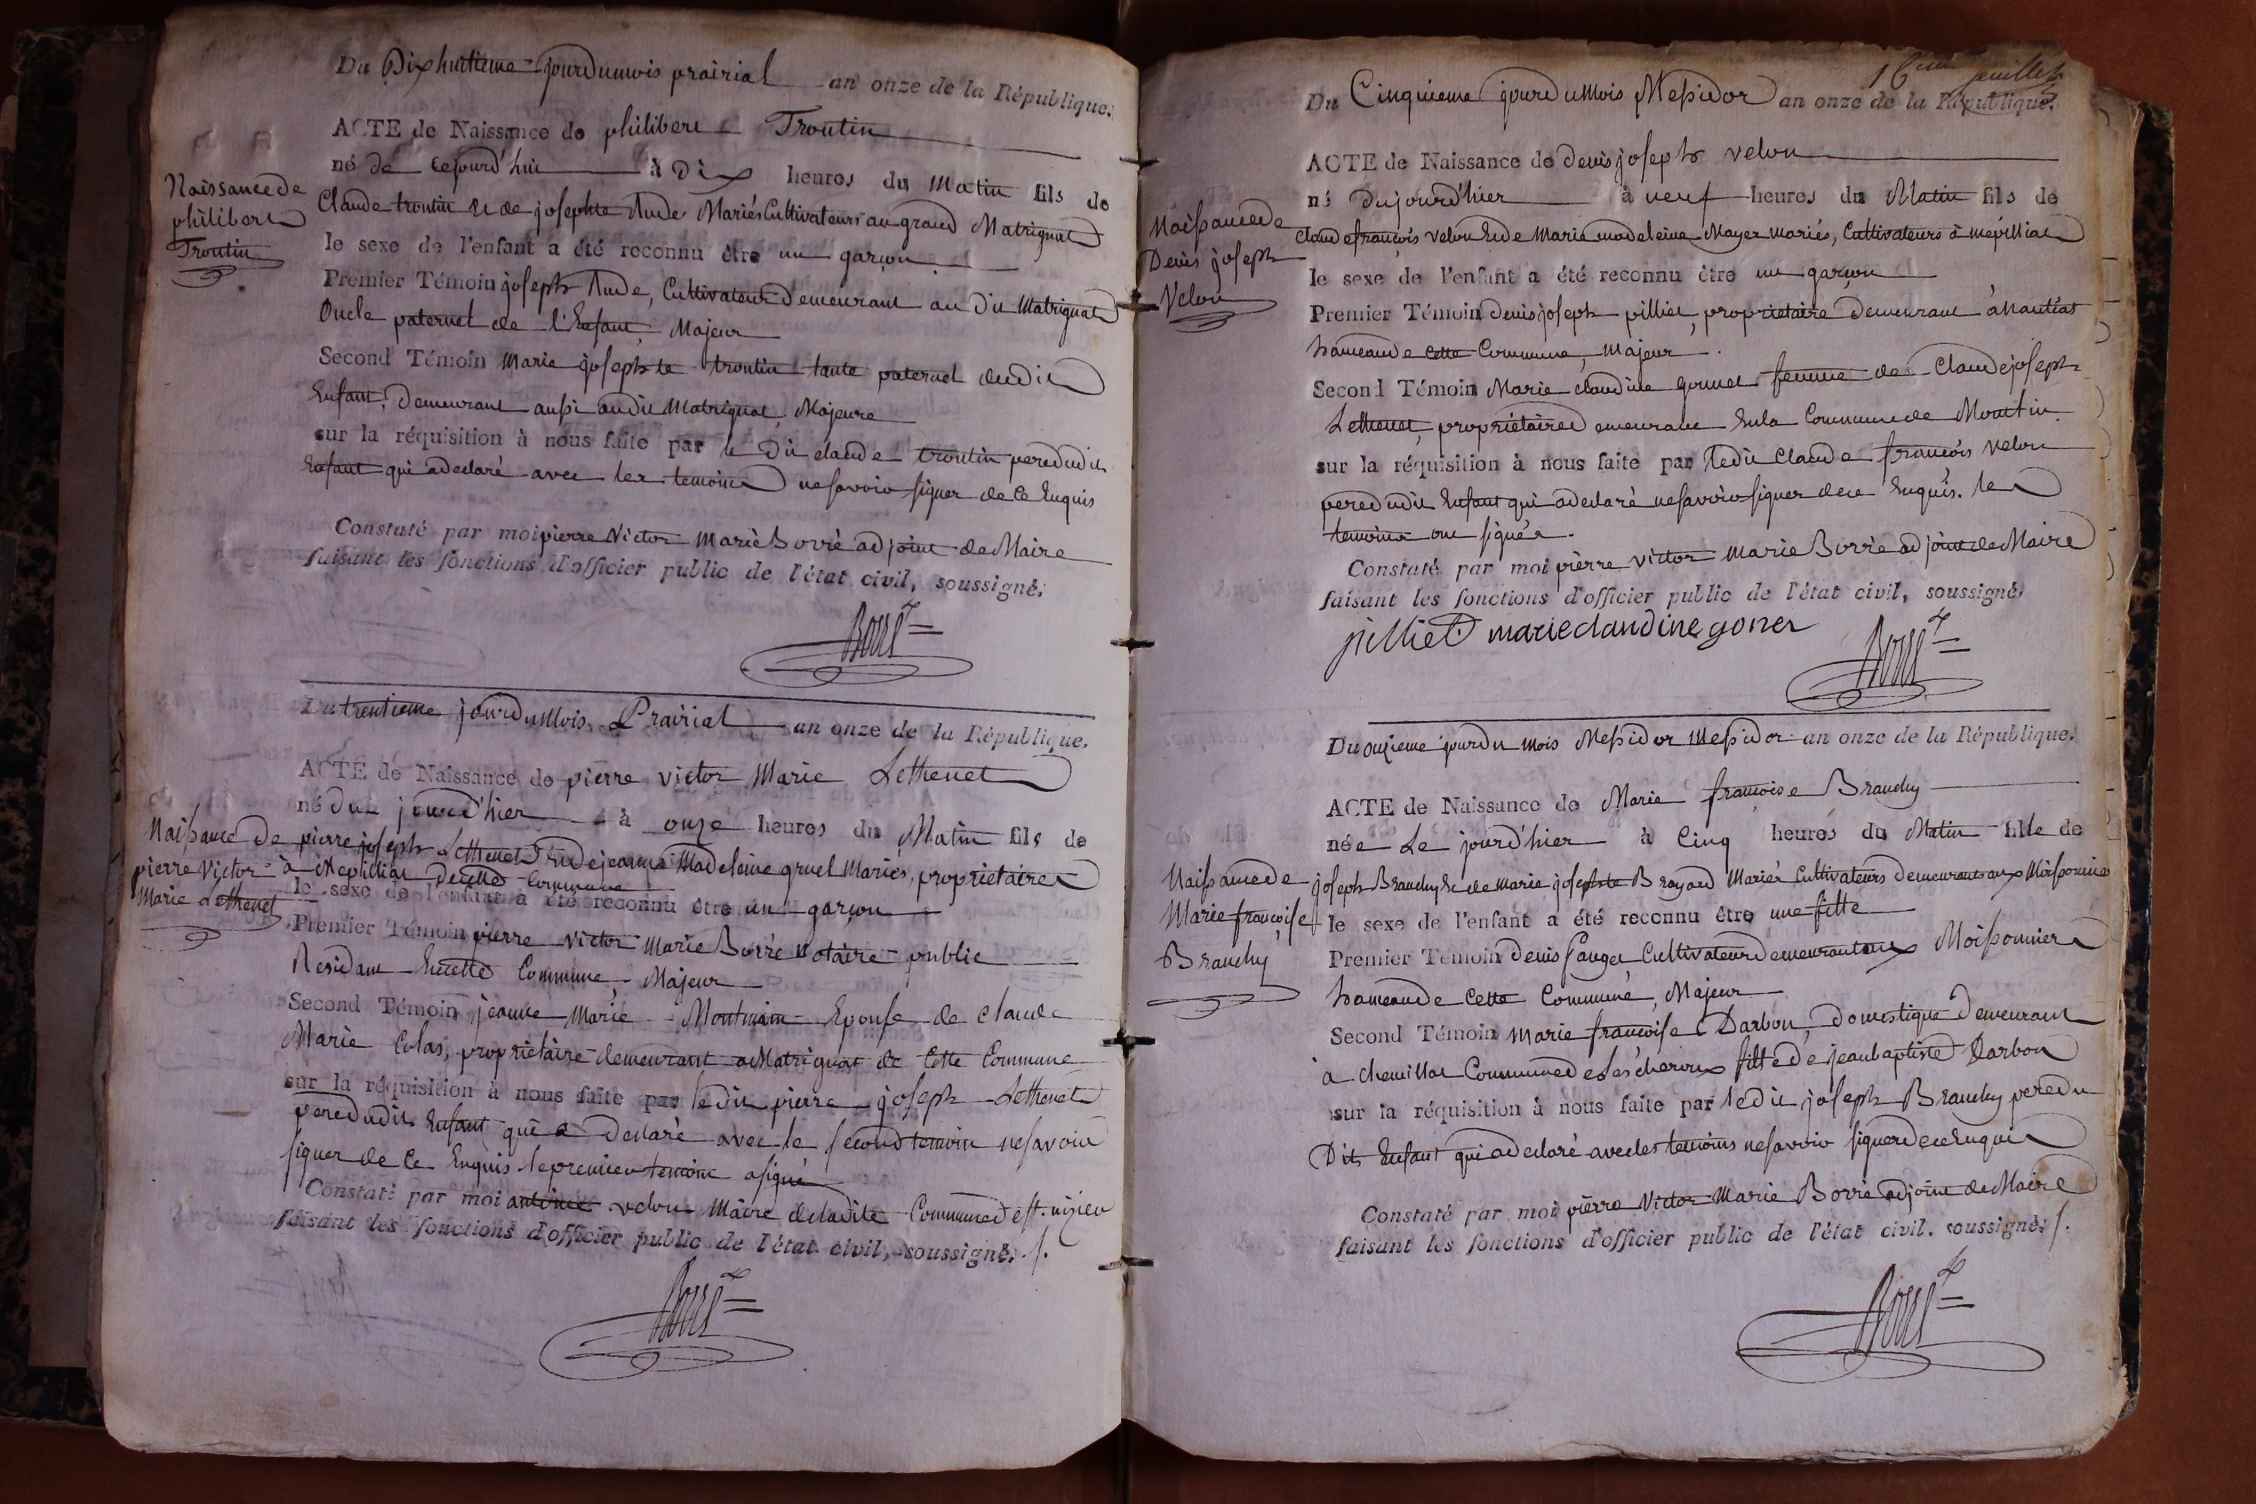 Du Dixhuitieme jourdumois prairial an onze de la République.
ACTE de Naissance de philibert Troutin
né de cejourd'hui à Dix heures du Matin fils de
Claude troutin et de josephte Aude Mariés Cultivateurs au grand Matrignat
le sexe de l'enfant a été reconnu être un garçon
Premier Témoin joseph Aude, Cultivateur Demeurant au Dit Matrignat
Oncle paternel de l'Enfant, Majeur
Second Témoin Marie josephte troutin tante paternel dudit
Enfant, Demeurant aussi audit Matrignat, Majeure
sur la réquisition à nous faite par le Dit claude troutin peredudit
Enfant qui adeclaré avec les temoins nesavoir signer de Ce Enquis
Constaté par moi pierre Victor marie Borré adjoint de Maire
faisant les fonctions d'officier public de l'état civil, soussigné.
Naissance de
philibert
Troutin
Borré
Du trentieme jourdumois Prairial an onze de la République.
ACTE de Naissance de pierre victor Marie Lethenet
né du jourd'hier à onze heures du Matin fils de
pierre joseph Lethenet Et de jeanne Madeleine gruel Mariés, proprietaires
à Mepilliat Decette Commune
le sexe de l'enfant a été reconnu être un garçon
Premier Témoin pierre victor Marie Borré Notaire public
Residant Encette Commune, Majeur
Second Témoin jeanne Marie Montmain Epouse de claude
Marie Colas, proprietaire demeurant a Matrignat de Cette Commune
sur la réquisition à nous faite par ledit pierre joseph Lethenet
peredudit Enfant qui a Declaré avec le second temoin nesavoir
signer de Ce Enquis lepremier temoin asigné
Constaté par moi antoine velon Maire deladite Communed St. nizier
faisant les fonctions d'officier public de l'état civil, soussigné.
Naissance de
pierre Victor
Marie Lethenet
Borré
16eme feuillet
Du Cinquieme jourdumois Messidor an onze de la République.
ACTE de Naissance de denis joseph velon
né Dujourd'hier à neuf heures du Matin fils de
Claude françois velon Et de Marie madeleine Mayer mariés, Cultivateurs à mépilliat
le sexe de l'enfant a été reconnu être un garçon
Premier Témoin denis joseph pilliet, proprietaire, Demeurant à Nantias
hameaude Cette Commune, majeur
Second Témoin Marie claudine gonnet femme de Claude joseph
Lethenet, propriétaire demeurant Enla Commune de Mantin
sur la réquisition à nous faite par Ledit Claude françois velon
peredudit Enfant qui adeclaré nesavoir signer dece Enquis. les
temoins ont signés.
Constaté par moi pierre victor marie Borré adjoint de Maire
faisant les fonctions d'officier public de l'état civil, soussigné
pilliet marieclaudine gonet
Borré
Naissancede
Denis joseph
Velon
Du onzieme jourdu mois Messidor Messidor an onze de la République.
ACTE de Naissance de Marie francoise Brauchy
née Le jourd'hier à Cinq heures du Matin fille de
joseph Brauchy Et de Marie josephte Broyard Mariés Cultivateurs demeurant aux Moissonnier
le sexe de l'enfant a été reconnu être une fille
Premier Témoin Denis pauget Cultivateur demeurant aux Moissonniers
hameaude Cette Commune, Majeur
Second Témoin Marie francoise Darbon, Domestique Demeurant
à chemillat Communede Lescheroux fille de jeanbaptiste Darbon
sur la réquisition à nous faite par ledit joseph Brauchy peredu
Dit Enfant qui adeclaré avecles temoins nesavoir signer dece Enquis
Constaté par moi pierre Victor Marie Borré adjoint de Maire
faisant les fonctions d'officier public de l'état civil, soussigné.
Naissancede
Marie francoise
Brauchy
Borré